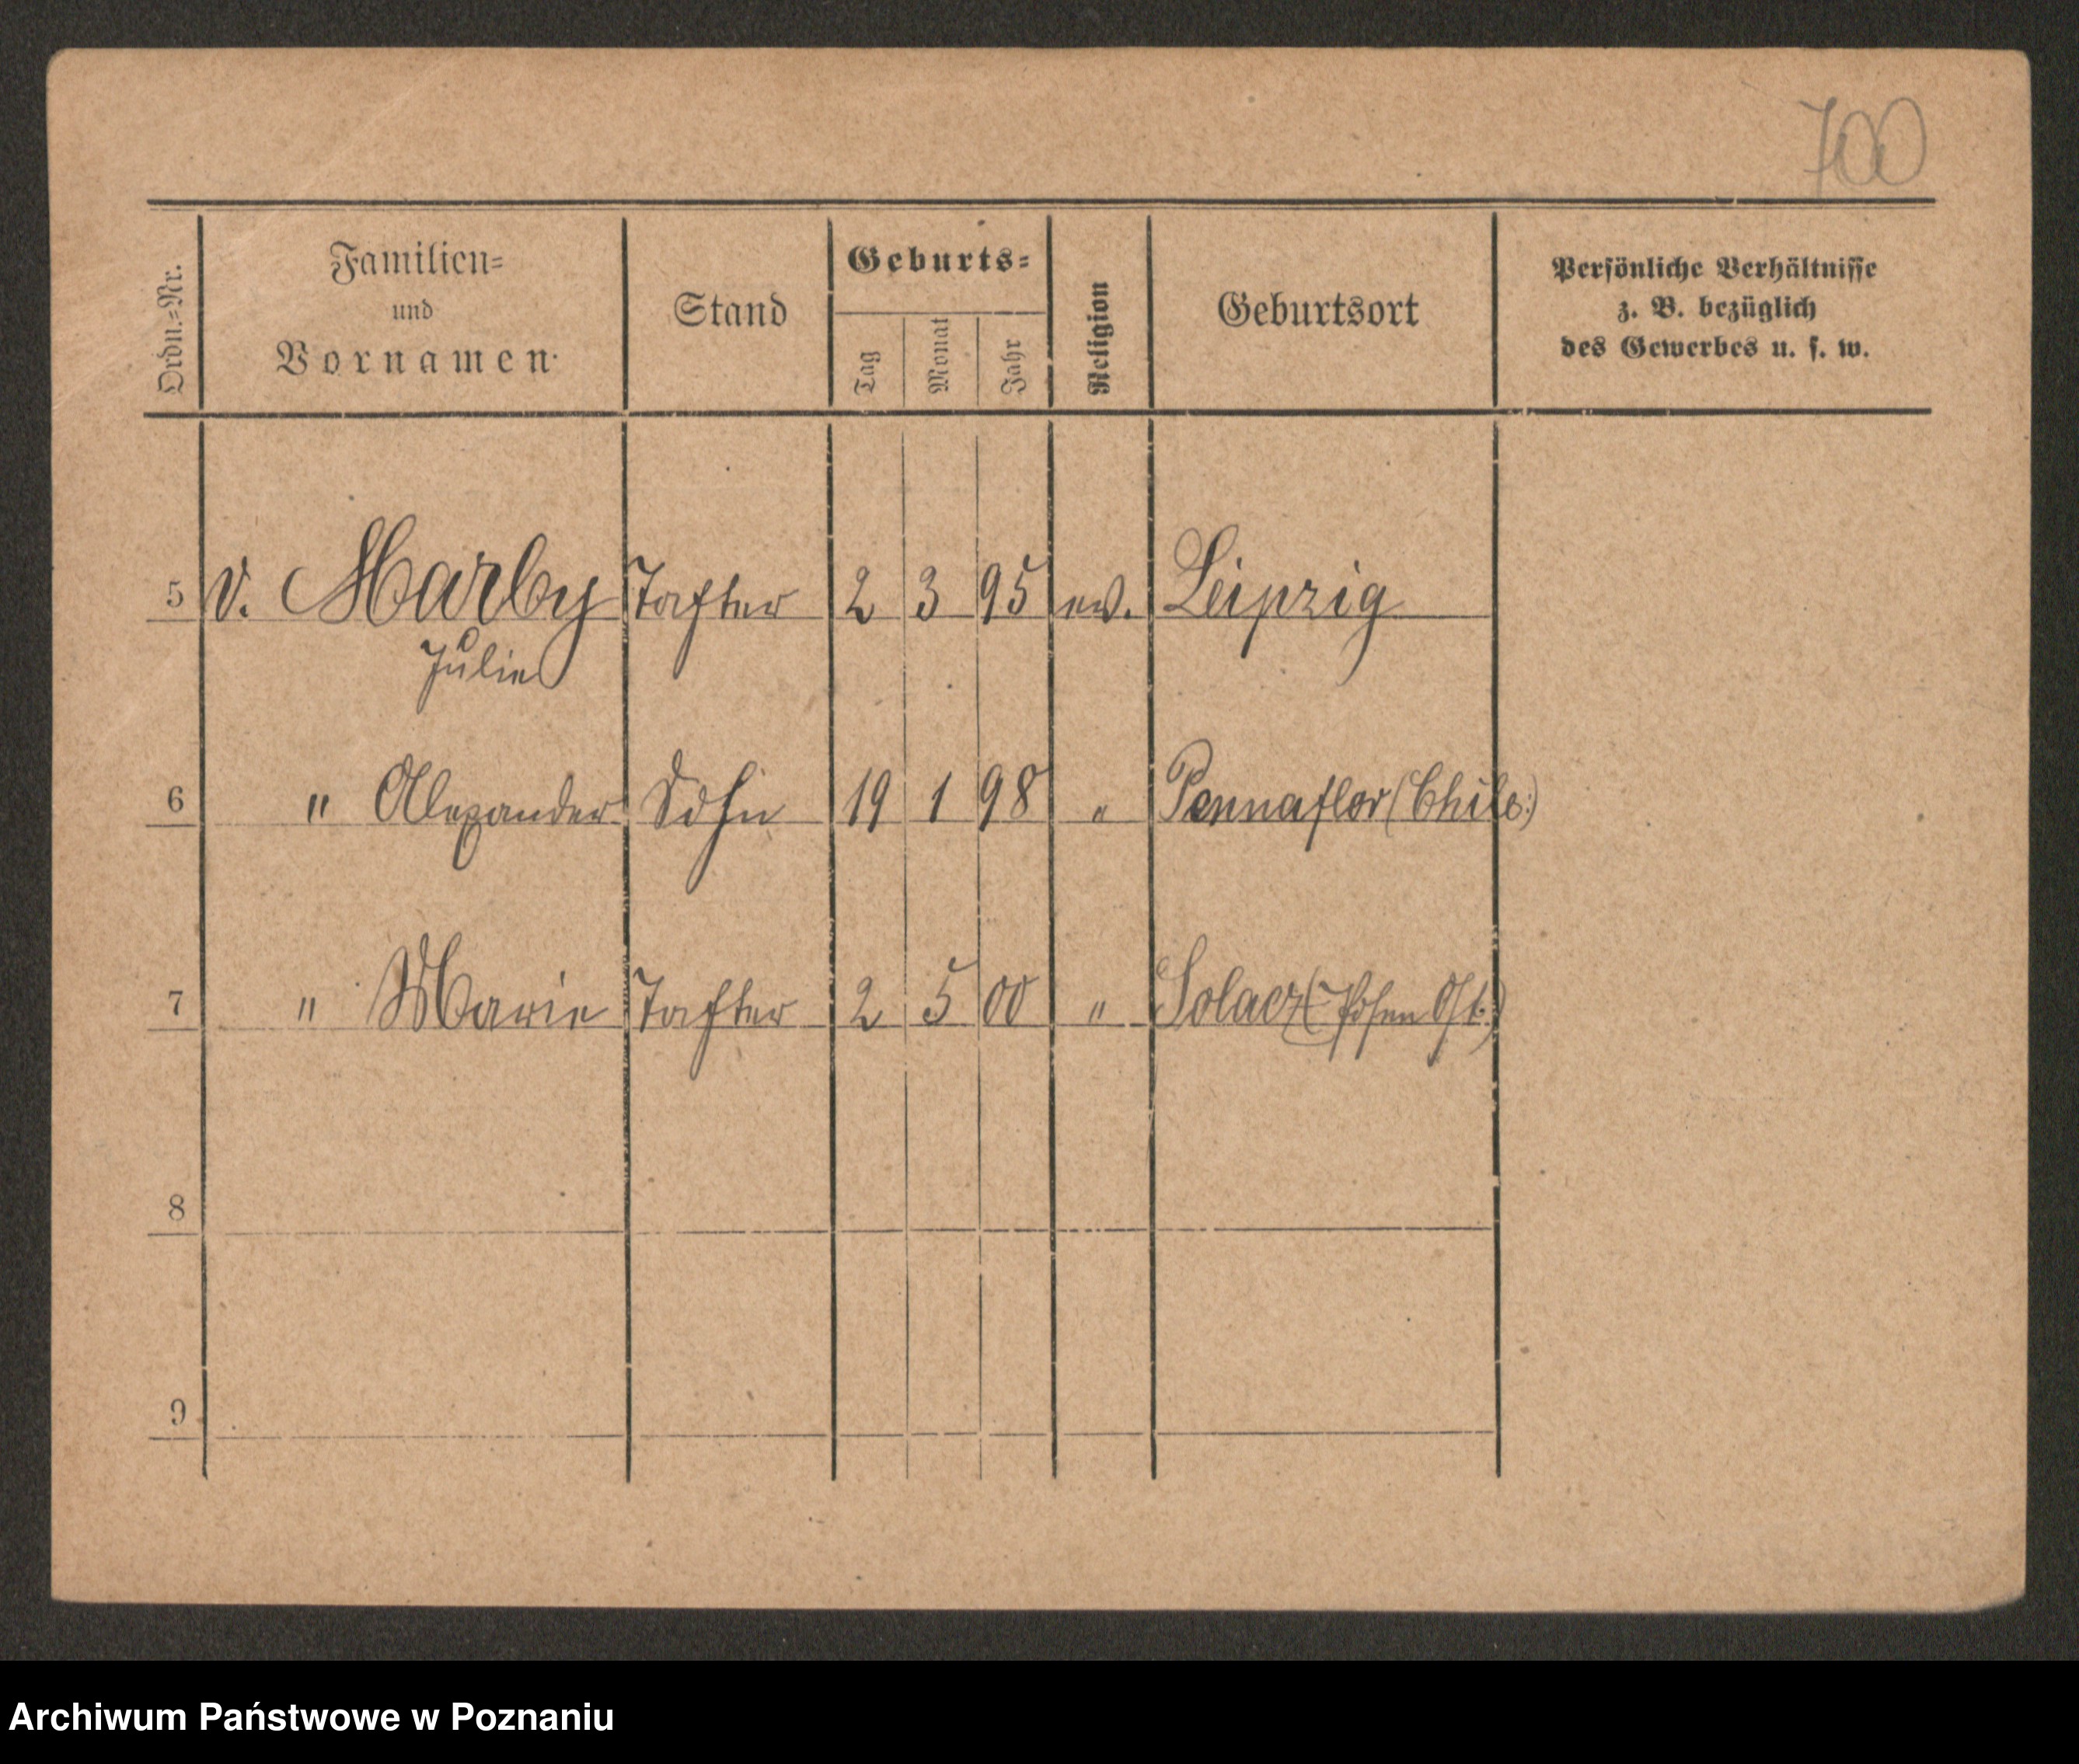 700
Ordn.=Nr.
Familien=
und
Vornamen
Stand
Geburts=
Tag
Monat
Jahr
Religion
Geburtsort
Persönliche Verhältnisse
z. B. bezüglich
des Gewerbes u. s. w.
5 v. Marby Tochter 2 3 95 ev. Leipzig
Julie
6 " Alexander Sohn 19 1 98 " Pennaflor (Chile.)
7 " Marie Tochter 2 5 00 " Solacz (Posen Ost.)
8
9
Archiwum Państwowe w Poznaniu